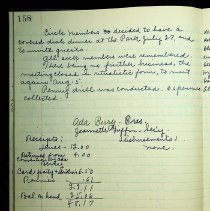 158
Circle members decided to have a
covered dish dinner at the Park July 27, and
to invite guests.
All sick members were remembered.
There being no further business, the
meeting closed in ritualistic form, to meet
again Aug. 5
Penny drill was conducted. 61 pennies
collected
Ada Berry - Pres.
Jeannette Sec'y
Receipts: Disbursements
Dues - 12.00 none.
4.00
Card party 6.50
Pennies .61
23.11
Bal on hand 25.06
48.17